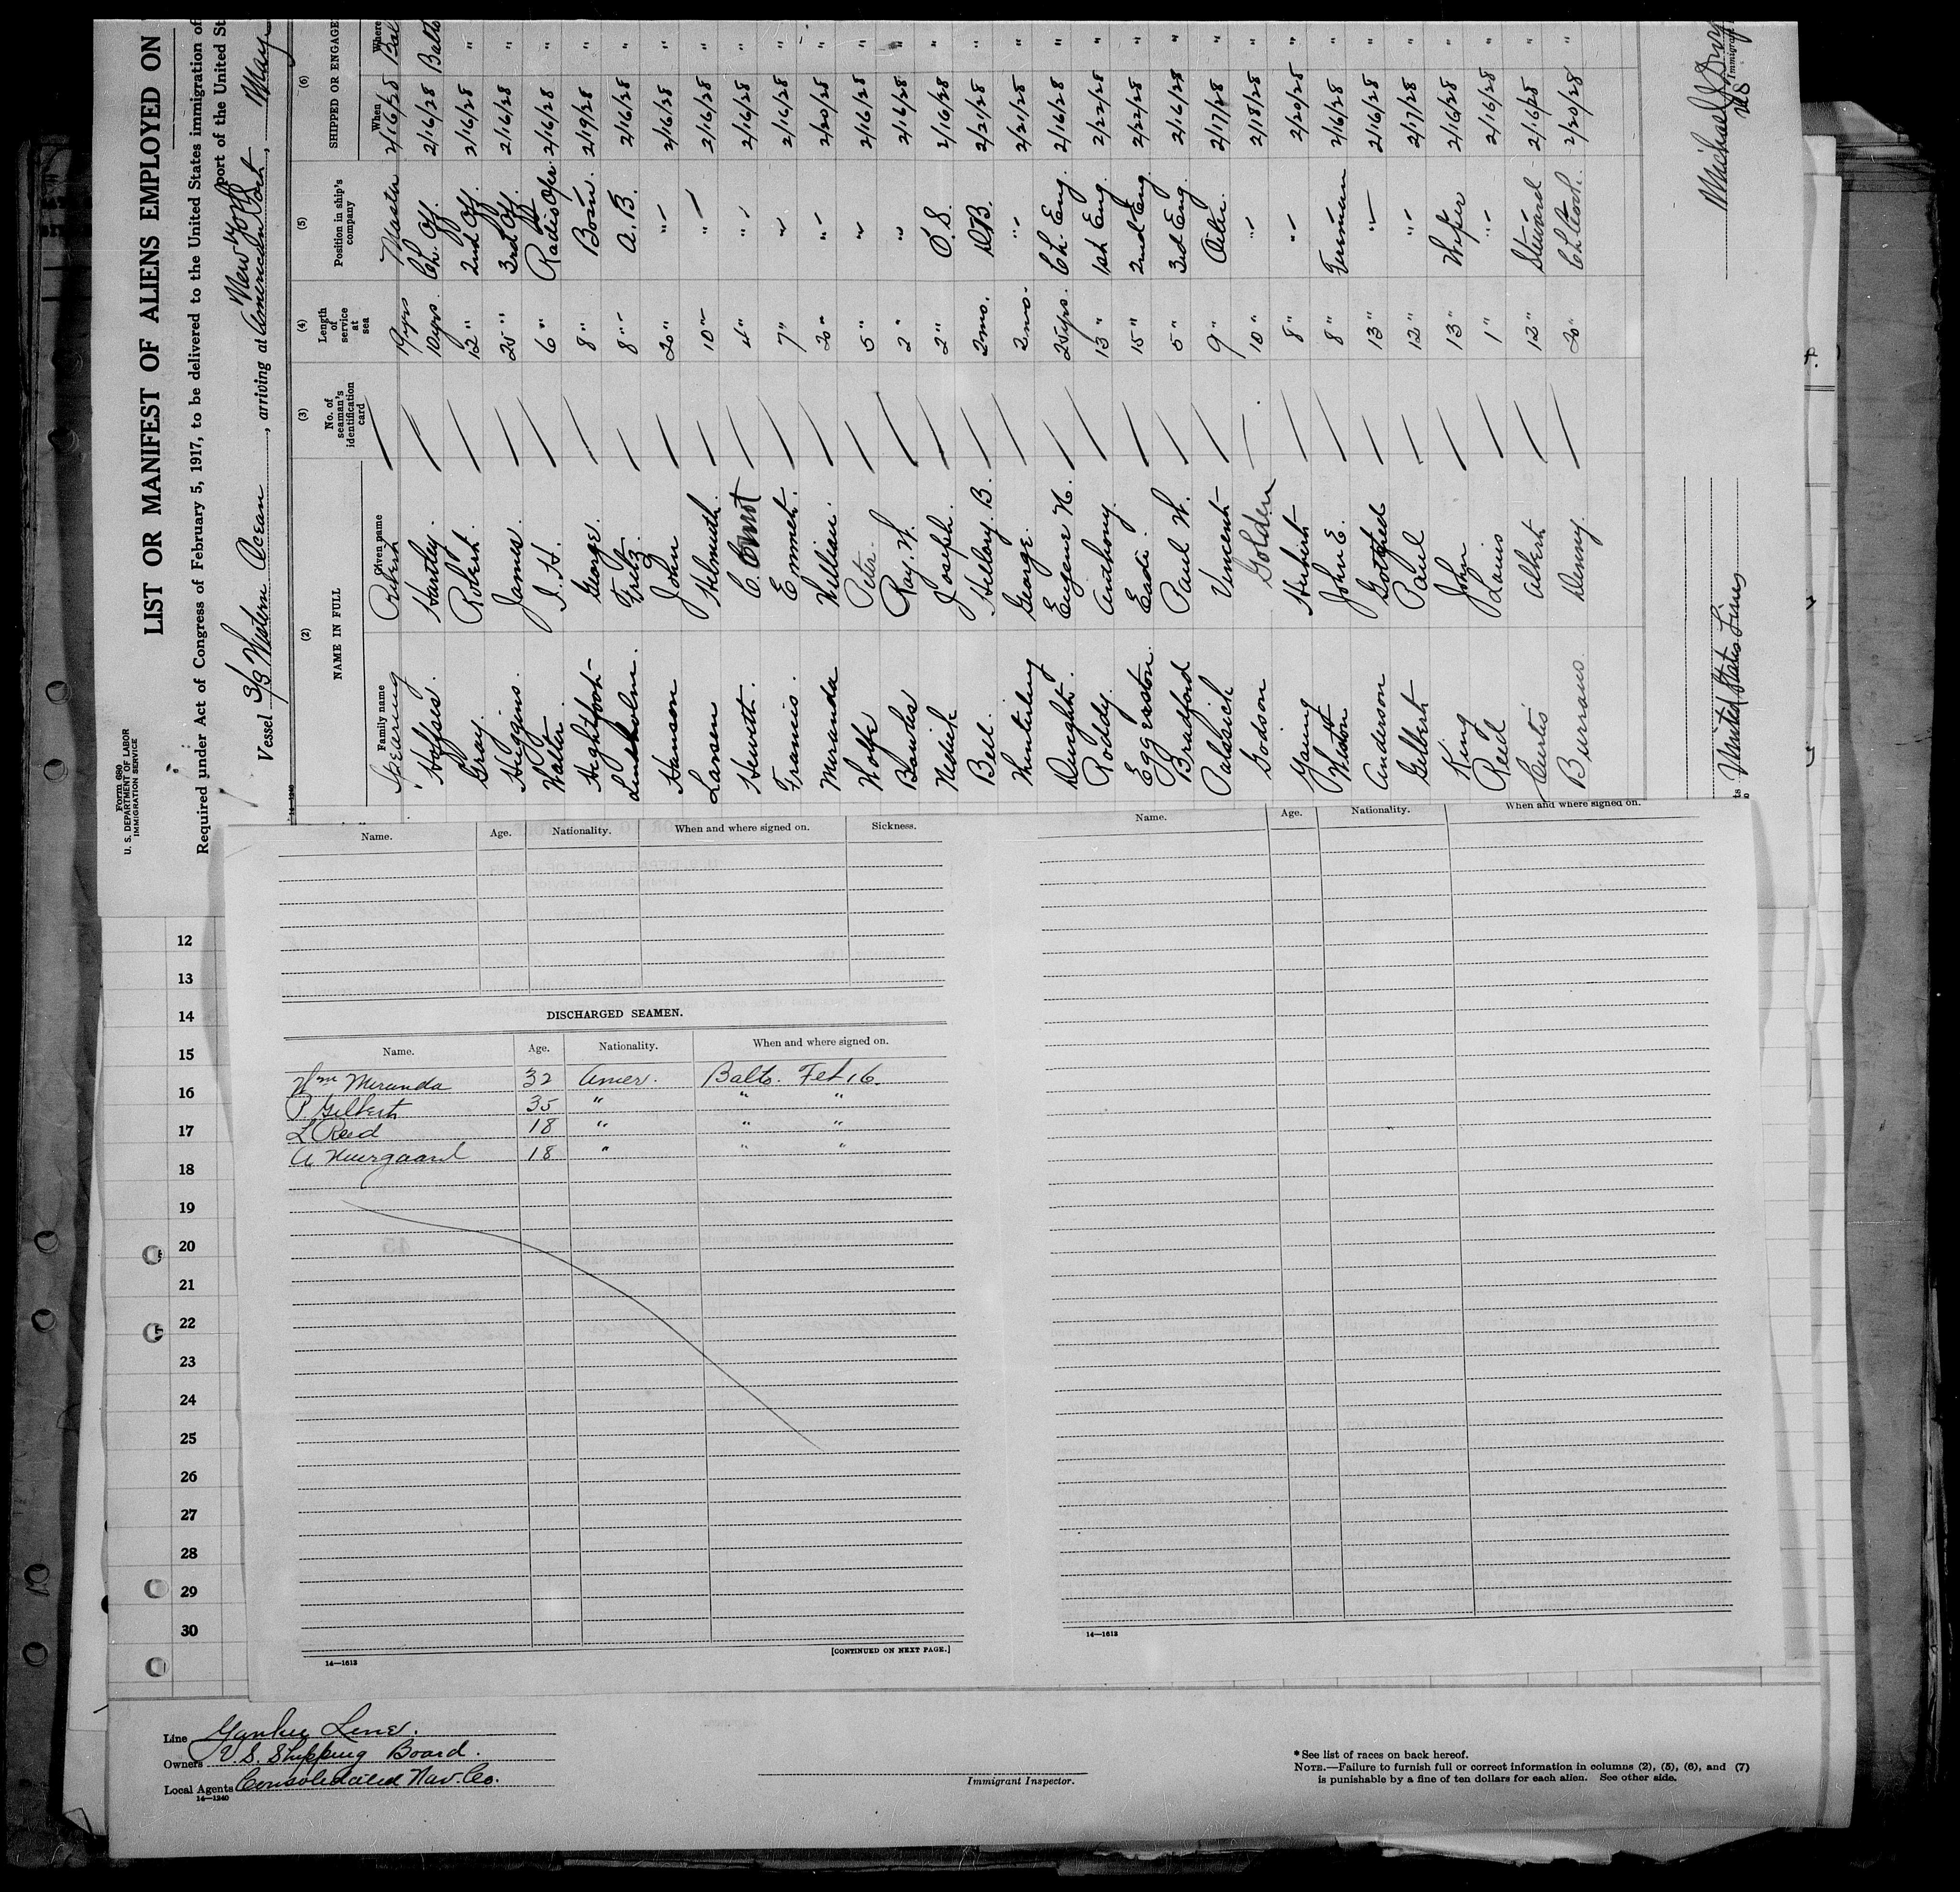 Form 680
U. S. DEPARTMENT OF LABOR
IMMIGRATION SERVICE
LIST OR MANIFEST OF ALIENS EMPLOYED ON
Required under Act of Congress of February 5, 1917, to be delivered to the United States immigration of
port of the United St
Vessel S/S Western Ocean, arriving at American Port New York, May
14—1240
(2) (3) (4) (5) (6)
NAME IN FULL No. of seaman's identification card Length of service at sea Position in ship's company SHIPPED OR ENGAGE
Family name Given name When Where
Spearing Robert 19 yrs Master 2/16/28 Bal
Hoffses Hartley. 10 yrs. Ch. Off. 2/16/28 Balto
Gray Robert. 12 " 2nd Off. 2/16/28 "
Higgins. James. 25 " 3rd Off. 2/16/28 "
Walter I. H. 6 " Radio Oper. 2/16/28 "
Hightfoot George. 8 " Bosin. 2/19/28 "
Lindholm. Fritz. 8 " A. B. 2/16/28 "
Hanson John 20 " " 2/16/28 "
Larsen Helmuth. 10 " " 2/16/28 "
Hewett. C. Ernst 4 " " 2/16/28 "
Francis. Emmett. 7 " " 2/16/28 "
Miranda William. 20 " " 2/20/28 "
Wolfe Peter. 5 " " 2/16/28 "
Bowles Ray. W. 2 " " 2/16/28 "
Nedick Joseph. 2 " O. S. 2/16/28 "
Bell. Hillary. B. 2 mo. D.B. 2/21/28 "
George. 2 mo. " 2/21/28 "
Dwight. Eugene N. 25 yrs. Ch. Eng. 2/16/28 "
Roddy. Anthony. 13 " 1st Eng. 2/22/28 "
Eggerston. 15 " 2nd Eng 2/22/28 "
Bradford Paul W. 5 " 3rd Eng. 2/16/28 "
Palassich Vincent 9 " Oiler. 2/17/28 "
Godson Golden 10 " " 2/18/28 "
Young Hubert 8 " " 2/20/28 "
Weston John E. 8 " Fireman 2/16/28 "
Anderson Gotfried 13 " " 2/16/28 "
Gilbert Paul 12 " " 2/17/28 "
King John 13 " Wiper 2/16/28 "
Reid Louis 1 " " 2/16/28 "
Curtis Albert 12 " Steward 2/16/28 "
Burrows. Denny. 20 " Ch Cook. 2/20/28 "
United States Lines
Immigrant
Name. Age. Nationality. When and where signed on. Sickness.
DISCHARGED SEAMEN.
Name. Age. Nationality. When and where signed on.
Wm Miranda 32 Amer. Balto. Feb 16.
P. Gilbert 35 " " "
L Reed 18 " " "
A Nuergaard 18 " " "
14—1613
[CONTINUED ON NEXT PAGE.]
Name. Age. Nationality. When and where signed on.
14—1613
12
13
14
15
16
17
18
19
20
21
22
23
24
25
26
27
28
29
30
Line Yankee Line.
Owners U.S. Shipping Board.
Local Agents Consolidated Nav. Co.
14—1240
Immigrant Inspector.
*See list of races on back hereof.
NOTE.—Failure to furnish full or correct information in columns (2), (5), (6), and (7)
is punishable by a fine of ten dollars for each alien. See other side.